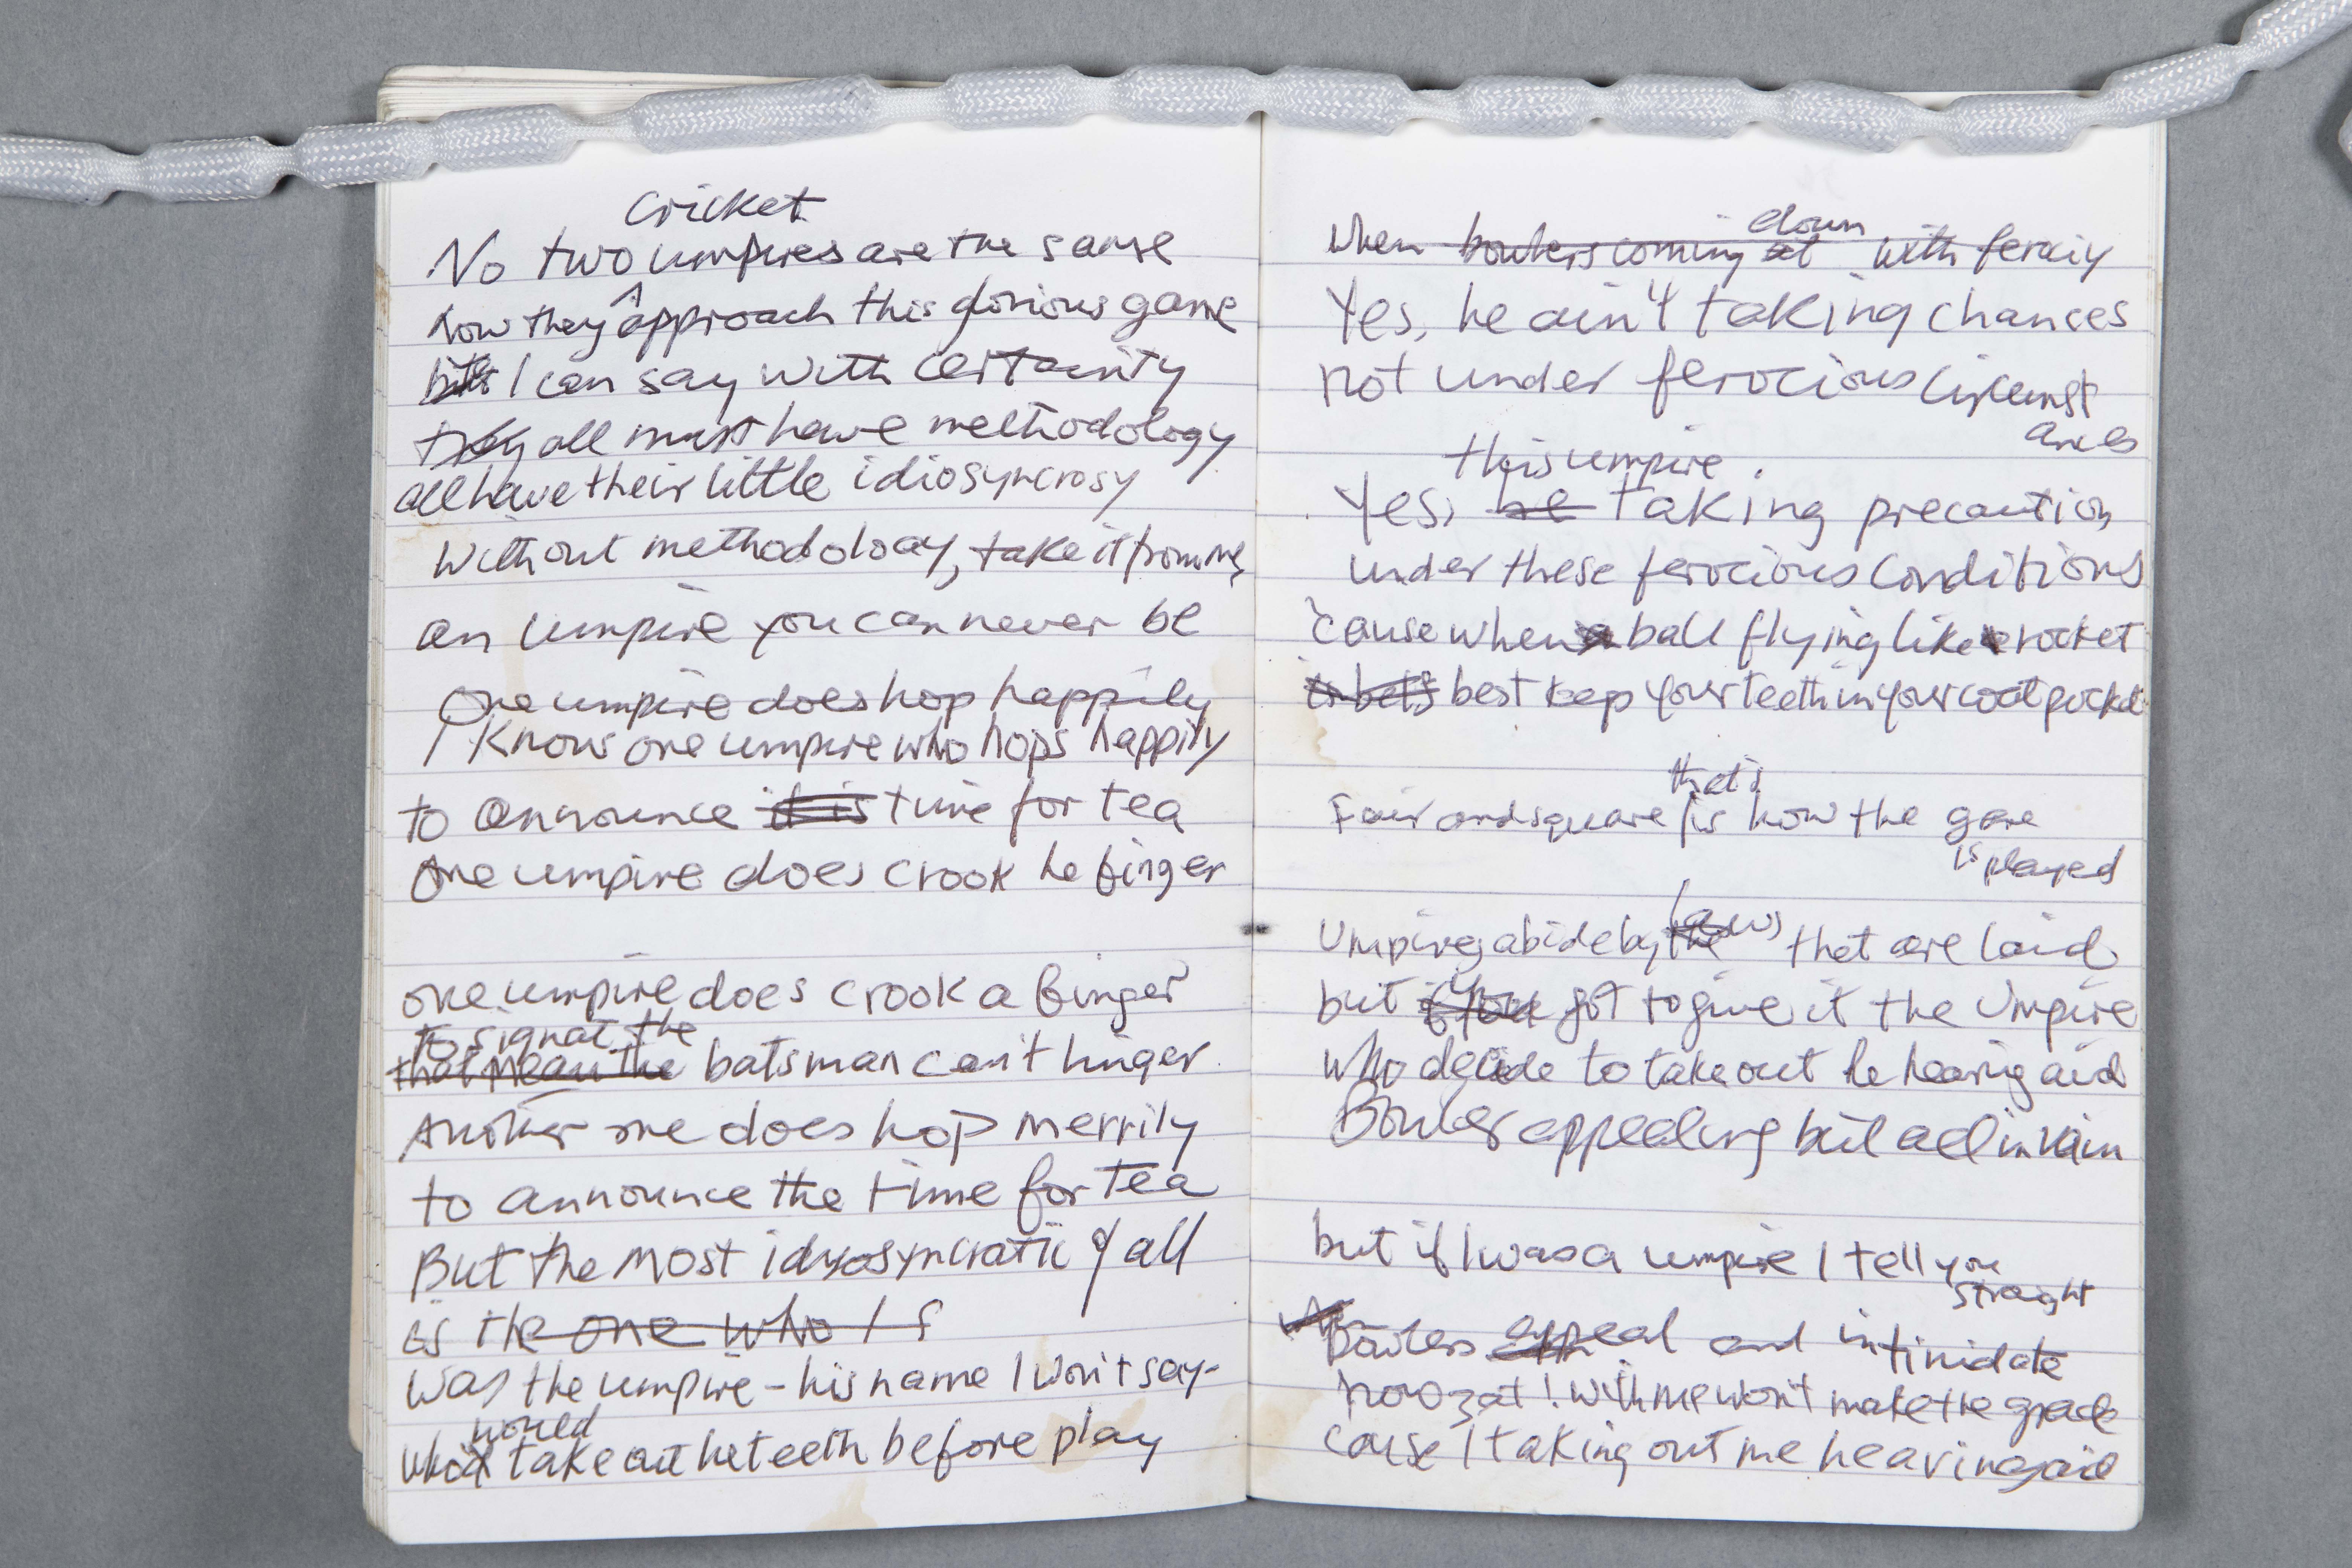 cricket
No two umpires are the same
how they approach this glorious game
I can say with certainty
they all must have methodology
all have their little idiosyncrosy
Without methodology, take it from me,
an umpire you can never be
One umpire does hop happily
I know one umpire who hops happily
to announce it is time for tea
One umpire does crook he finger
one umpire does crook a finger
to signal the
that mean the batsman can't linger
Another one does hop merrily
to announce the time for tea
But the most idyosyncratic of all
is the one who I f
Was the umpire - his name I won't say -
would
who take out he teeth before play
down
when bowlers coming at with ferociy
Yes, he ain't taking chances
not under ferocious circumst
ances
this umpire
Yes, he taking precaution
under these ferocious conditions
'cause when a ball flying like a rocket
best keep your teeth in your coat pocket
that's
Fair and square is how the game
is played
laws
Umpires abide by the that are laid
but if you got to give it the Umpire
who decide to take out he hearing aid
Bowler appealing but all in vain
but if I was a umpire I tell you
straight
Bowlers appeal and intimidate
howzat! with me won't make the grade
cause I taking out me hearing aid